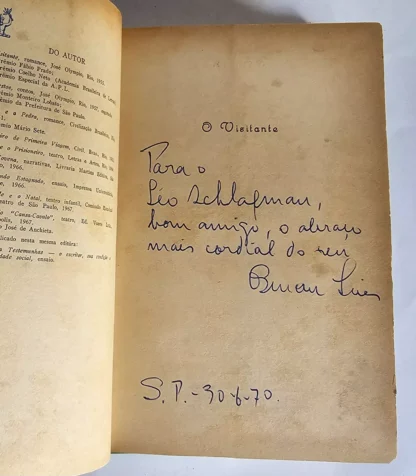 DO AUTOR
romance, José Olympio, Rio, 1955.
Prêmio Fábio Prado;
Prêmio Coelho Neto (Academia Brasileira de Letras)
Especial da A.P.L.
contos, José Olympio, Rio, 1957,
Prêmio Monteiro Lobato;
Prêmio da Prefeitura de São Paulo.
e a Pedra, romance, Civilização Brasileira,
Prêmio Mário Sete.
de Primeira Viagem, Civil. Bras., Rio,
e o Prisioneiro, teatro, Letras e Artes, Rio,
narrativas, Livraria Martins Editora,
1966.
Estagnada, ensaio, Imprensa Universitária,
1966.
e o Natal, teatro infantil, Comissão Estadual
Teatro de São Paulo, 1967.
do "Cansa-Cavalo", teatro, Ed. Vozes
1967.
José de Anchieta.
publicado nesta mesma editora:
Testemunhas — o escritor, sua condição e
realidade social, ensaio.
O Visitante
Para o
Léo Schlafman,
bom amigo, o abraço
mais cordial do seu
Osman Lins
S.P.-30-6-70.